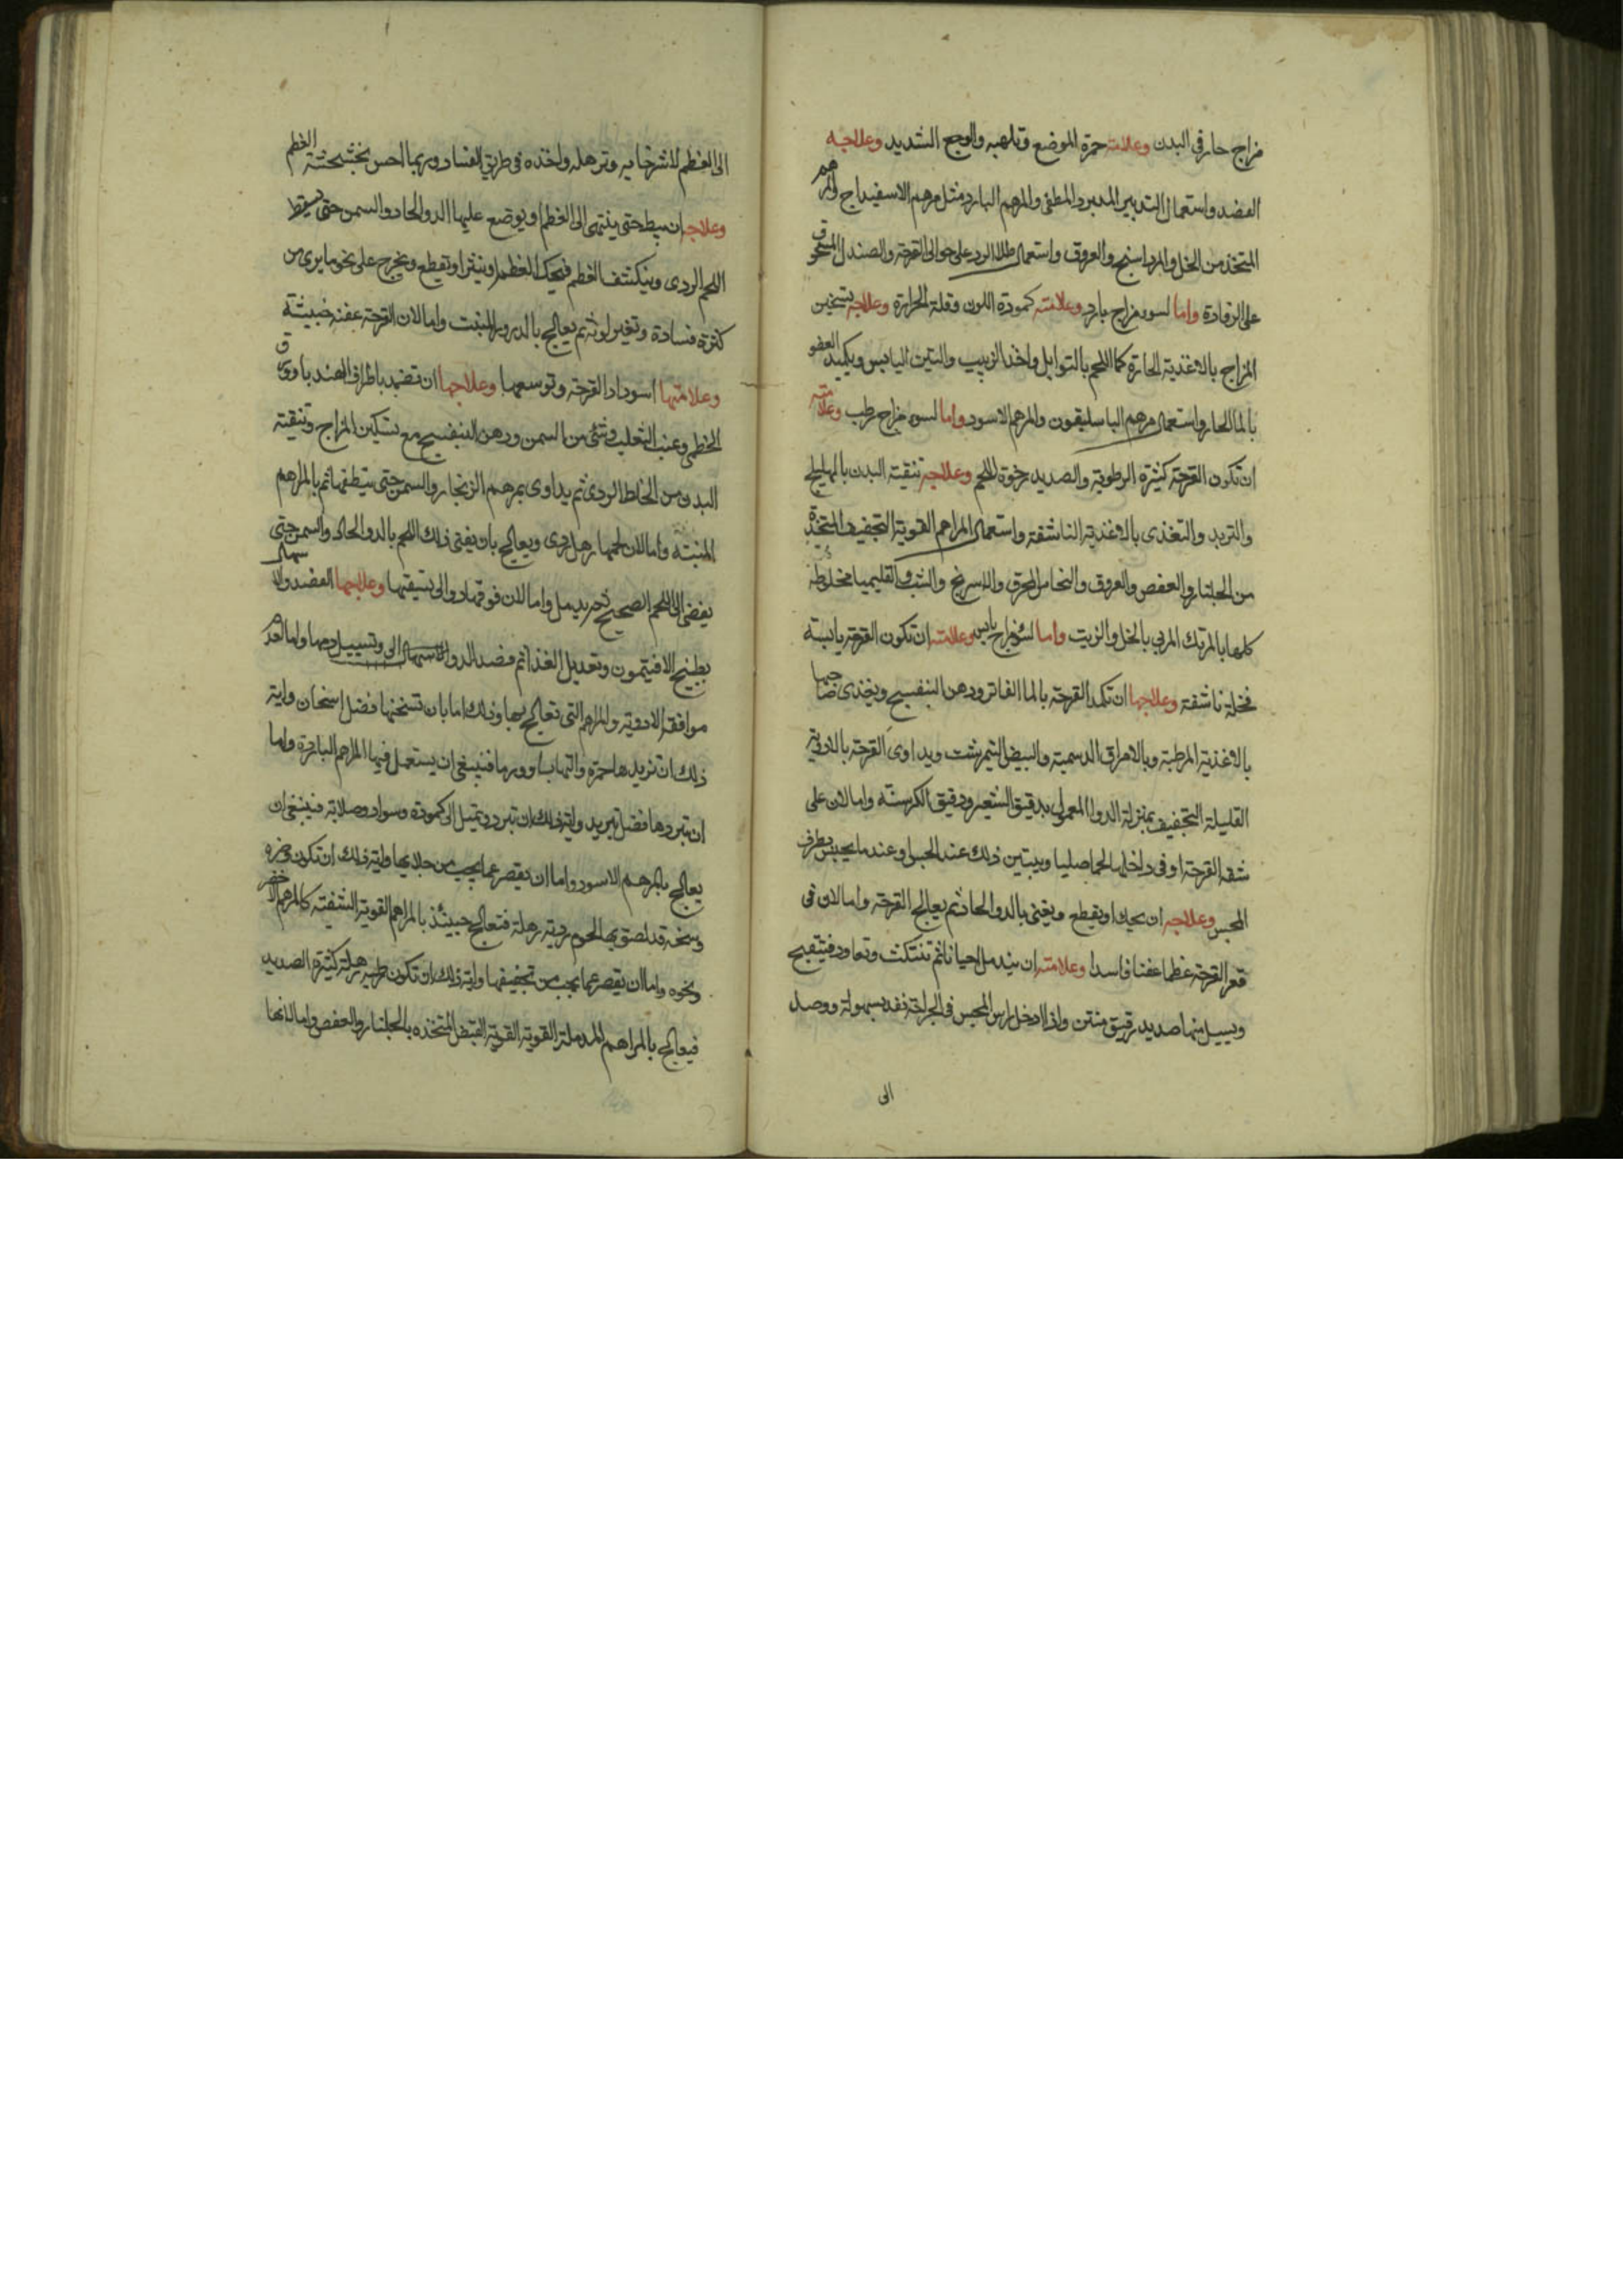 مزاج حار فى البدن وعلامته حمرة الموضع وتلهبه والوجع الشديد وعلاجه
الفصد واستعمال التدبير المبرد المطفى والمرهم البارد مثل مرهم الاسفيداج والمرهم
المتخذ من الخل والمرداسنج والعروق واستعمال طلا الورد على حوالى القرحة والصندل المسحوق
على الرفادة واما لسوء مزاج بارد وعلامته كمودة اللون وقلة الحرارة وعلاجه تسخين
المزاج بالاغذية الحارة كما اللحم بالتوابل واخذ الزبيب والتين اليابس وتكميد العضو
بالما الحار واستعمال مرهم الباسليقون والمرهم الاسود واما لسوء مزاج رطب وعلامته
ان تكون القرحة كثيرة الرطوبة والصديد رخوة اللحم وعلاجه تنقية البدن بالهليلج
والتربد والتغذى بالاغذية الناشفة واستعمال المراهم القوية التجفيف المتخذة
من الجلنار والعفص والعروق والنحاس المحرق والاسرنج والشب والقليميا مخلوطة
كلها بالمرتك المربى بالخل والزيت واما لسوء مزاج يابس وعلامته ان تكون القرحة يابسة
قحلة ناشفة وعلاجها ان تكمد القرحة بالما الفاتر ودهن البنفسج ويغذى صاحبها
بالاغذية المرطبة وبالامراق الدسمة والبيض النيمرشت ويداوى القرحة بالادوية
القليلة التجفيف بمنزلة الدوا المعمول بدقيق الشعير ودقيق الكرسنة واما لان على
شفة القرحة او فى داخلها لحما صلبا ويتبين ذلك عند الحبس او عند ما يجس بطرف
المجس وعلاجه ان يحك او يقطع ويفنى بالدوا الحاد ثم يعالج القرحة واما لان فى
قعر القرحة عظما عفنا فاسدا وعلامته ان يندمل احيانا ثم تنتكث وتعاود فتتقيح
ويسيل منها صديد رقيق منتن واذا ادخل راس المجس فى الجراحة نفد بسهولة ووصل
الى
الى العظم لاسترخايه وترهله واخذه فى طريق الفساد وربما احس بخشخشة العظم
وعلاجه ان يبط حتى ينتهى الى العظم او يوضع عليها الدوا الحاد والسمن حتى يسقط
اللحم الردى وينكشف العظم فيحك العظم او ينشر او يقطع ويخرج على نحو ما يرى من
كثرة فسادة وتغير لونه ثم يعالج بالدرور المنبت واما لان القرحة عفنه خبيثة
وعلامتها اسوداد القرحة وتوسعها وعلاجها ان تضمد باطراف الهندبا وورق
الخطمى وعنب الثعلب وشى من السمن ودهن البنفسج مع تسكين المزاج وتنقية
البدن من الخلط الردى ثم يداوى بمرهم الزنجار والسمن حتى ينظفها ثم بالمراهم
المنبته واما لان لحمها رهل ردى ويعالج بان يفنى ذلك اللحم بالدوا الحاد والسمن حتى
يفضى الى اللحم الصحيح ثم يدمل واما لان فوقها دوالى تسقيها وعلاجها الفصد والاسهال
بطبيخ الافتيمون وتعديل الغذا ثم فصد الدوالى وتسييل دمها واما لعدم
موافقة الادوية والمراهم التى تعالج بها وذلك اما بان تسخنها فضل اسخان واية
ذلك ان تزيدها حمرة والتهابا وورما فينبغى ان يستعمل فيها المراهم الباردة واما
ان تبردها فضل تبريد واية ذلك ان تبرد وتميل الى كمودة وسواد وصلابة فينبغى ان
يعالج بالمرهم الاسود واما ان يقصر عما يجب من جلايها واية ذلك ان تكون وضرة
وسخة قد لصق بها لحوم ردية رهلة فتعالج حينئذ بالمراهم القوية المنقية كالمرهم الاخضر
ونحوه واما ان يقصر عما يجب من تجفيفها واية ذلك ان تكون رطبة رهلة كثيرة الصديد
فيعالج بالمراهم المدملة القوية القوية القبض المتخذه بالجلنار والعفص واما لانها